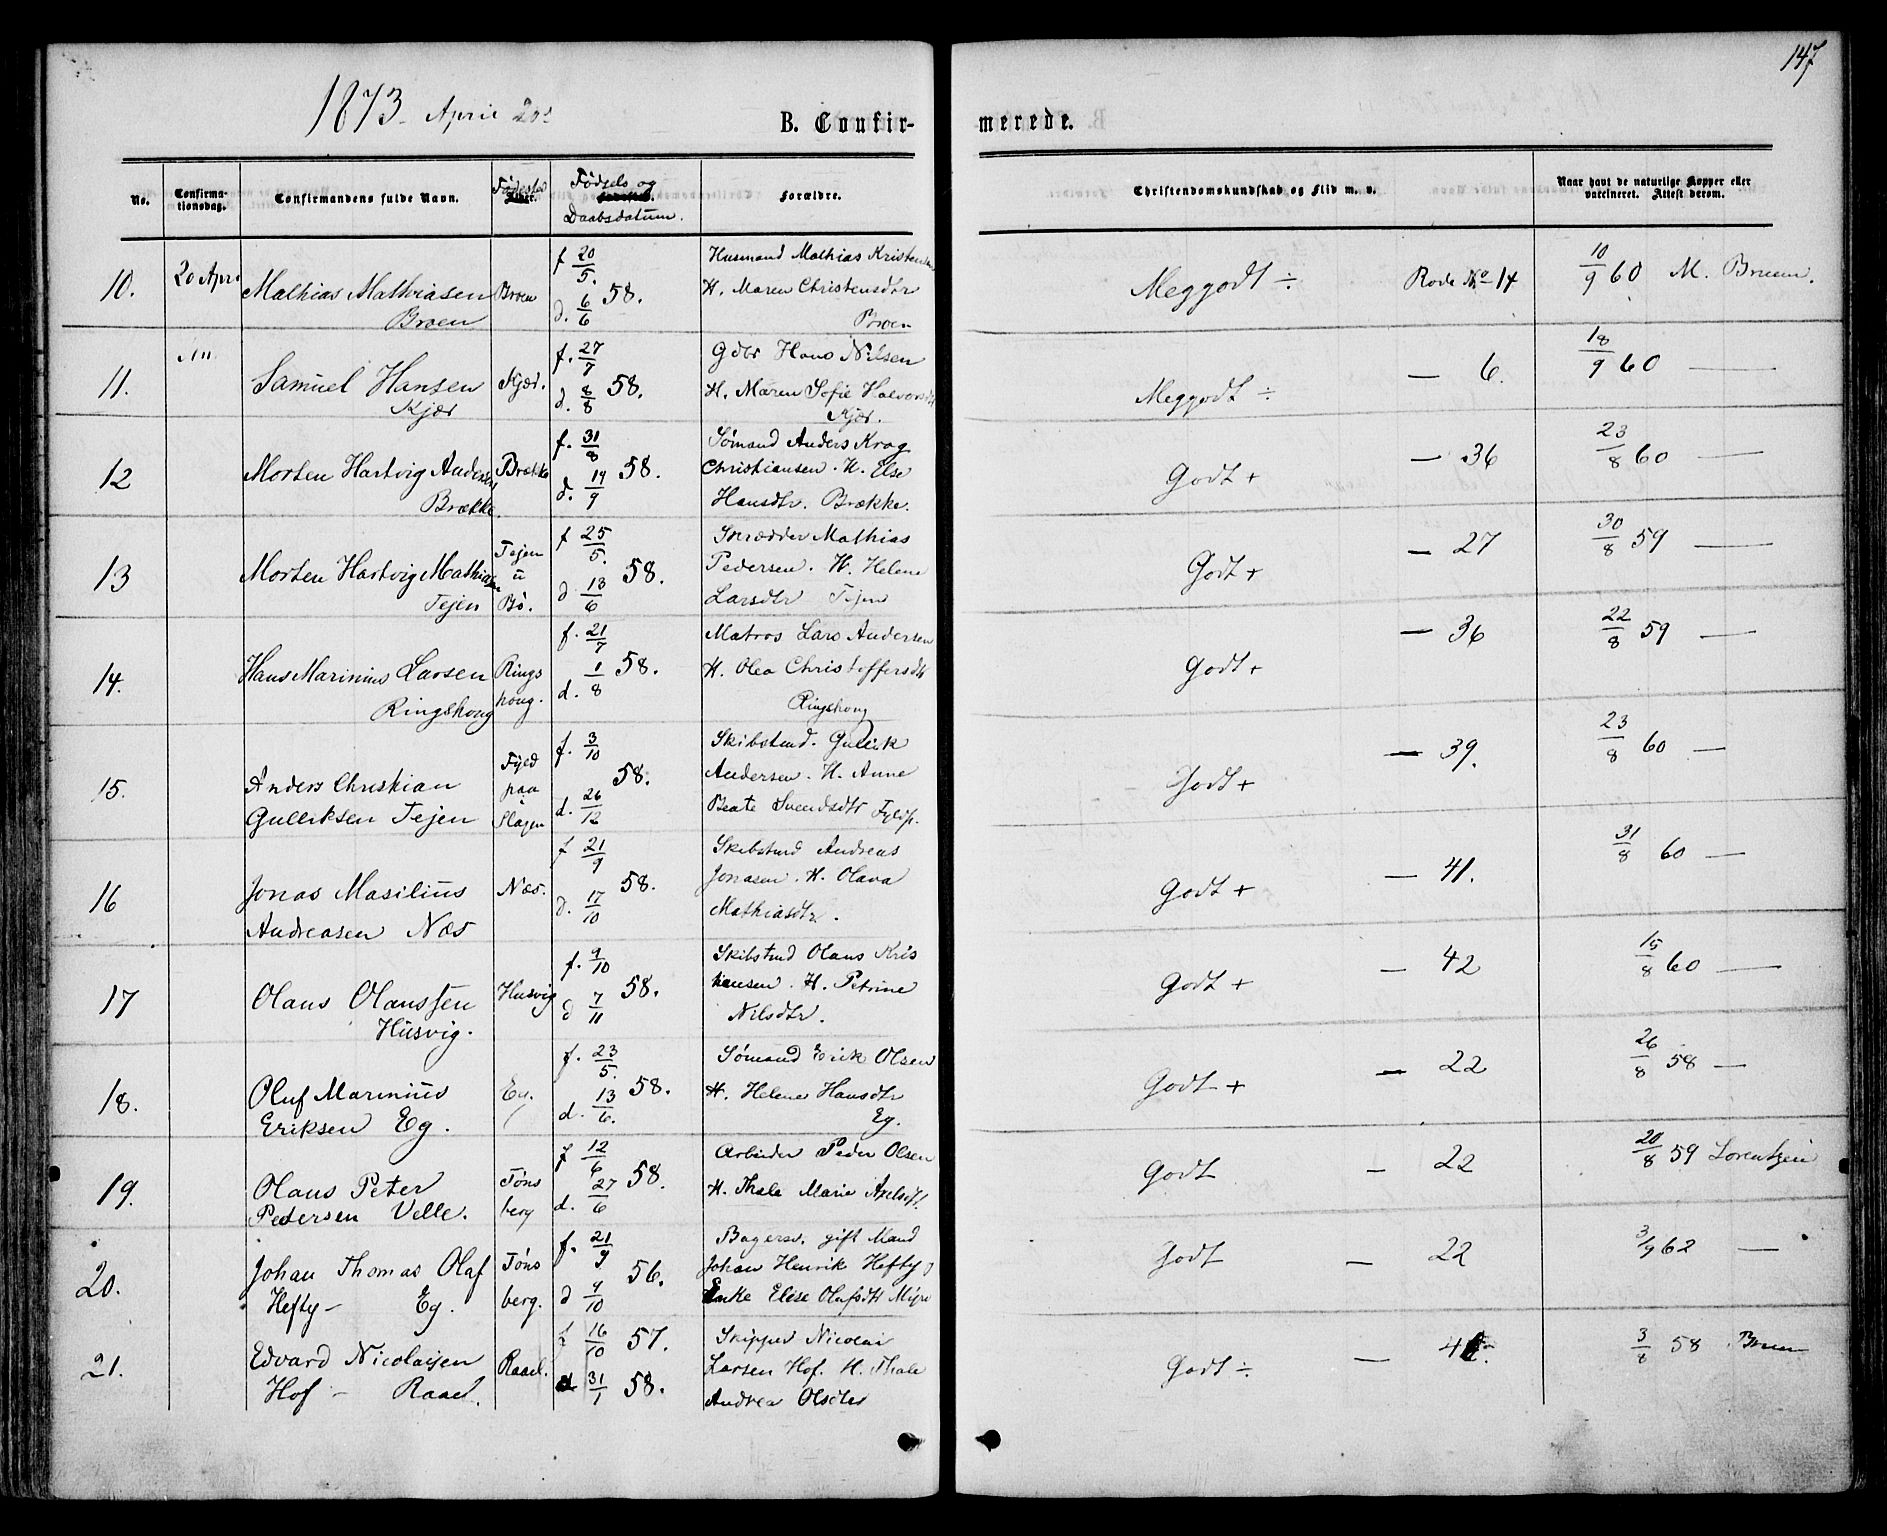 147
1873 April 20de
B. Confirmerede.
No. Confirmationsdag. Confirmandens fulde Navn. Fødested Fødsels og Daabsdatum. Forældre. Christendomskundskab og Flid m. v. Naar havt de naturlige Kopper eller vaccineret. Attest derom.
10. 20 April Mathias Mathiasen Broen f 20/5. d. 6/6 58. Husmand Mathias Kristensen Meggodt ÷ Rode No 14 10/9 60 M. Bruun.
Broen H. Maren Christensdtr
Broen
11. Samuel Hansen Kjær. f. 27/7 d. 8/8 58. Gdbr Hans Nilsen Meggodt ÷ — 6. 18/9 60 —
Kjær H. Maren Sofie Halvorsdtr
Kjær.
12 Morten Hartvig Andersen Brække f. 31/8 d. 14/9 58. Sømand Anders Krog Godt + — 36 23/8 60 —
Brække. Christiansen. H. Else
Hansdtr. Brække.
13 Morten Hartvig Mathiasen Tejen u Bø. f 25/5. d 13/6 58. Skrædder Mathias Godt + — 27 30/8 59 —
Tejen Pedersen. H. Helene
Larsdtr Tejen
14. Hans Marinius Larsen Rings houg. f. 21/7 d. 1/8 58. Matros Lars Andersen Godt + — 36 22/8 59 —
Ringshoug H. Olea Christoffersdtr
Ringshoug
15. Anders Christian Fyld paa Slagen f. 3/10 d. 26/12 58. Skibstmd. Gullik Godt + — 39. 23/8 60 —
Gulliksen Tejen Andersen. H. Anne
Beate Svendsdtr Fyldp.
16 Jonas Masilius Næs. f 21/9 d. 17/10 58. Skibstmd Andreas Godt + — 41. 31/8 60 —
Andreasen Næs Jonasen. H. Olava
Mathiasdtr.
17 Olaus Olaussen Husvig f. 9/10 d 7/11 58. Skibstmd Olaus Kris Godt + — 42 15/8 60 —
Husvig. tiansen. H. Petrine
Nilsdtr.
18. Oluf Marinius Eg. f. 23/5. d. 13/6. 58. Sømand Erik Olsen Godt + — 22 26/8 58 —
Eriksen Eg. H. Helene Hansdtr
Eg.
19. Olaus Peter Tøns berg f 12/6 d. 27/6 58. Arbeider Peder Olsen Godt — 22 20/8 59 Lorentzen
Pedersen Velle. H. Thale Marie Axelsdtr.
20. Johan Thomas Olaf Tøns berg. f. 21/9 d 9/10 56. Bagersv. gift Mand Godt — 22 3/9 62 —
Hefty – Eg. Johan Henrik Hefty o
Enke Elise Olafsdtr Myre
21. Edvard Nicolaisen Raael. f 16/10 57. d 31/1 58. Skipper Nicolai Godt ÷ — 3/8 58 Bruun
Hof – Raael. Larsen Hof. H. Thale
Andrea Olsdtr